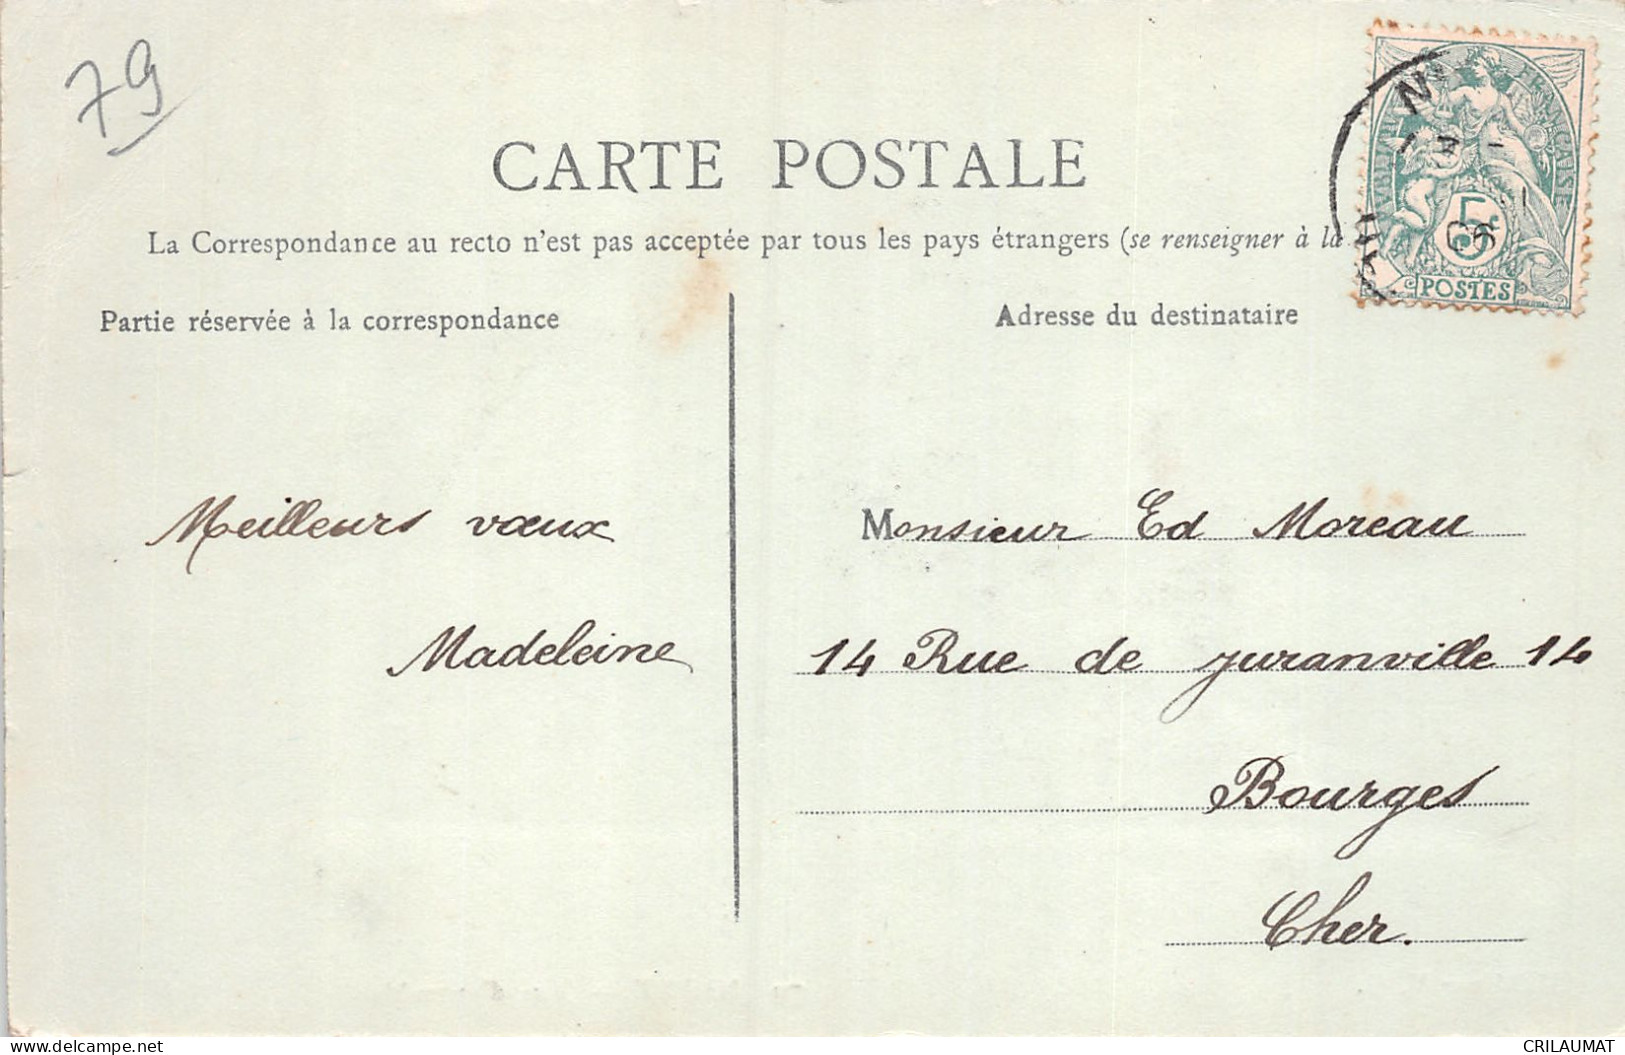 79
CARTE POSTALE
La Correspondance au recto n'est pas acceptée par tous les pays étrangers (se renseigner à la
Partie réservée à la correspondance
Adresse du destinataire
FRANÇAISE
5c
POSTES
Meilleurs vœux
Madeleine
Monsieur Ed Moreau
14 Rue de Juranville 14
Bourges
Cher.
CRILAUMAT
delcampe.net